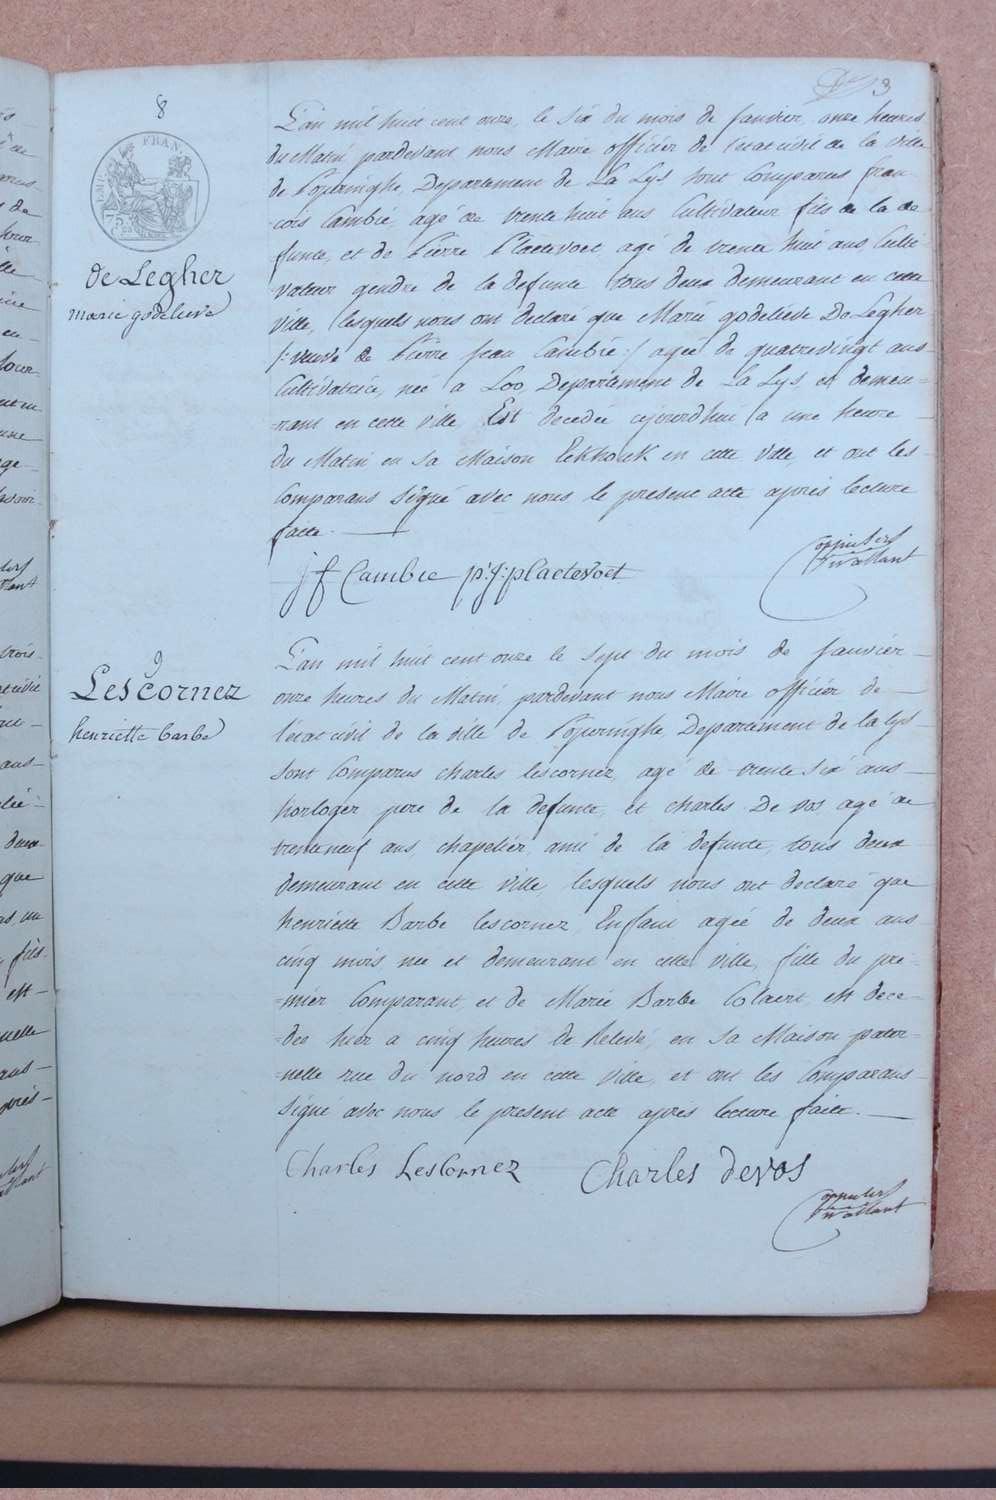 3
8
EMPIRE FRAN.
75
de Legher
marie godelieve
L'an mil huit cent onze, le six du mois de Janvier, onze heures
du Matin pardevant nous Maire officier de l'état civil de la ville
de Poperinghe, Departement de La Lys sont Comparus fran-
cois Cambié, agé de trente huit ans Cultivateur fils de la de
funte, et de Pierre Plaetevoet agé de trente huit ans Culti-
vateur gendre de la defunte tous deux demeurant en cette
ville, lesquels nous ont declaré que Marie godelieve De Legher
/: veuve de Pierre Jean Cambié :/ agée de quatrevingt ans
Cultivatrice, née a Loo, Departement de La Lys, et demeu-
=rant en cette ville Est decedée cejourdhui a une heure
du Matin en sa Maison Eekhouk en cette ville, et ont les
Comparans signé avec nous le present acte après lecture
faite.
jf Cambie p:j: plaetevoet
9
Lescornez
henriette barbe
L'an mil huit cent onze le sept du mois de Janvier
onze heures du Matin, pardevant nous Maire officier de
l'état civil de la ville de Poperinghe, Departement de la lys
sont Comparus charles lescornez, agé de trente six ans
horloger pere de la defunte, et charles De vos agé de
trenteneuf ans, chapelier, ami de la defunte, tous deux
demeurant en cette ville, lesquels nous ont declaré que
henriette Barbe lescornez, Enfant agée de deux ans
cinq mois, née et demeurant en cette ville, fille du pre-
=mier Comparant et de Marie Barbe Colaert, est dece-
=dée hier a cinq heures de Relevé, en sa Maison pater-
=nelle rue du nord en cette ville, et ont les Comparans
signé avec nous le present acte après lecture faite.
Charles LesCornez Charles devos